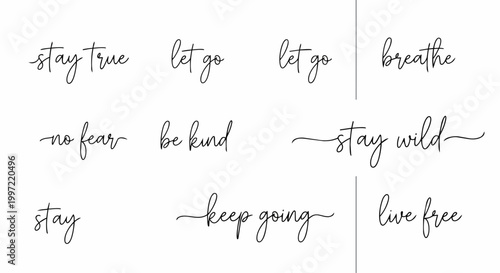 stay true let go let go breathe
no fear be kind stay wild
stay keep going live free
Adobe Stock | #1997220496